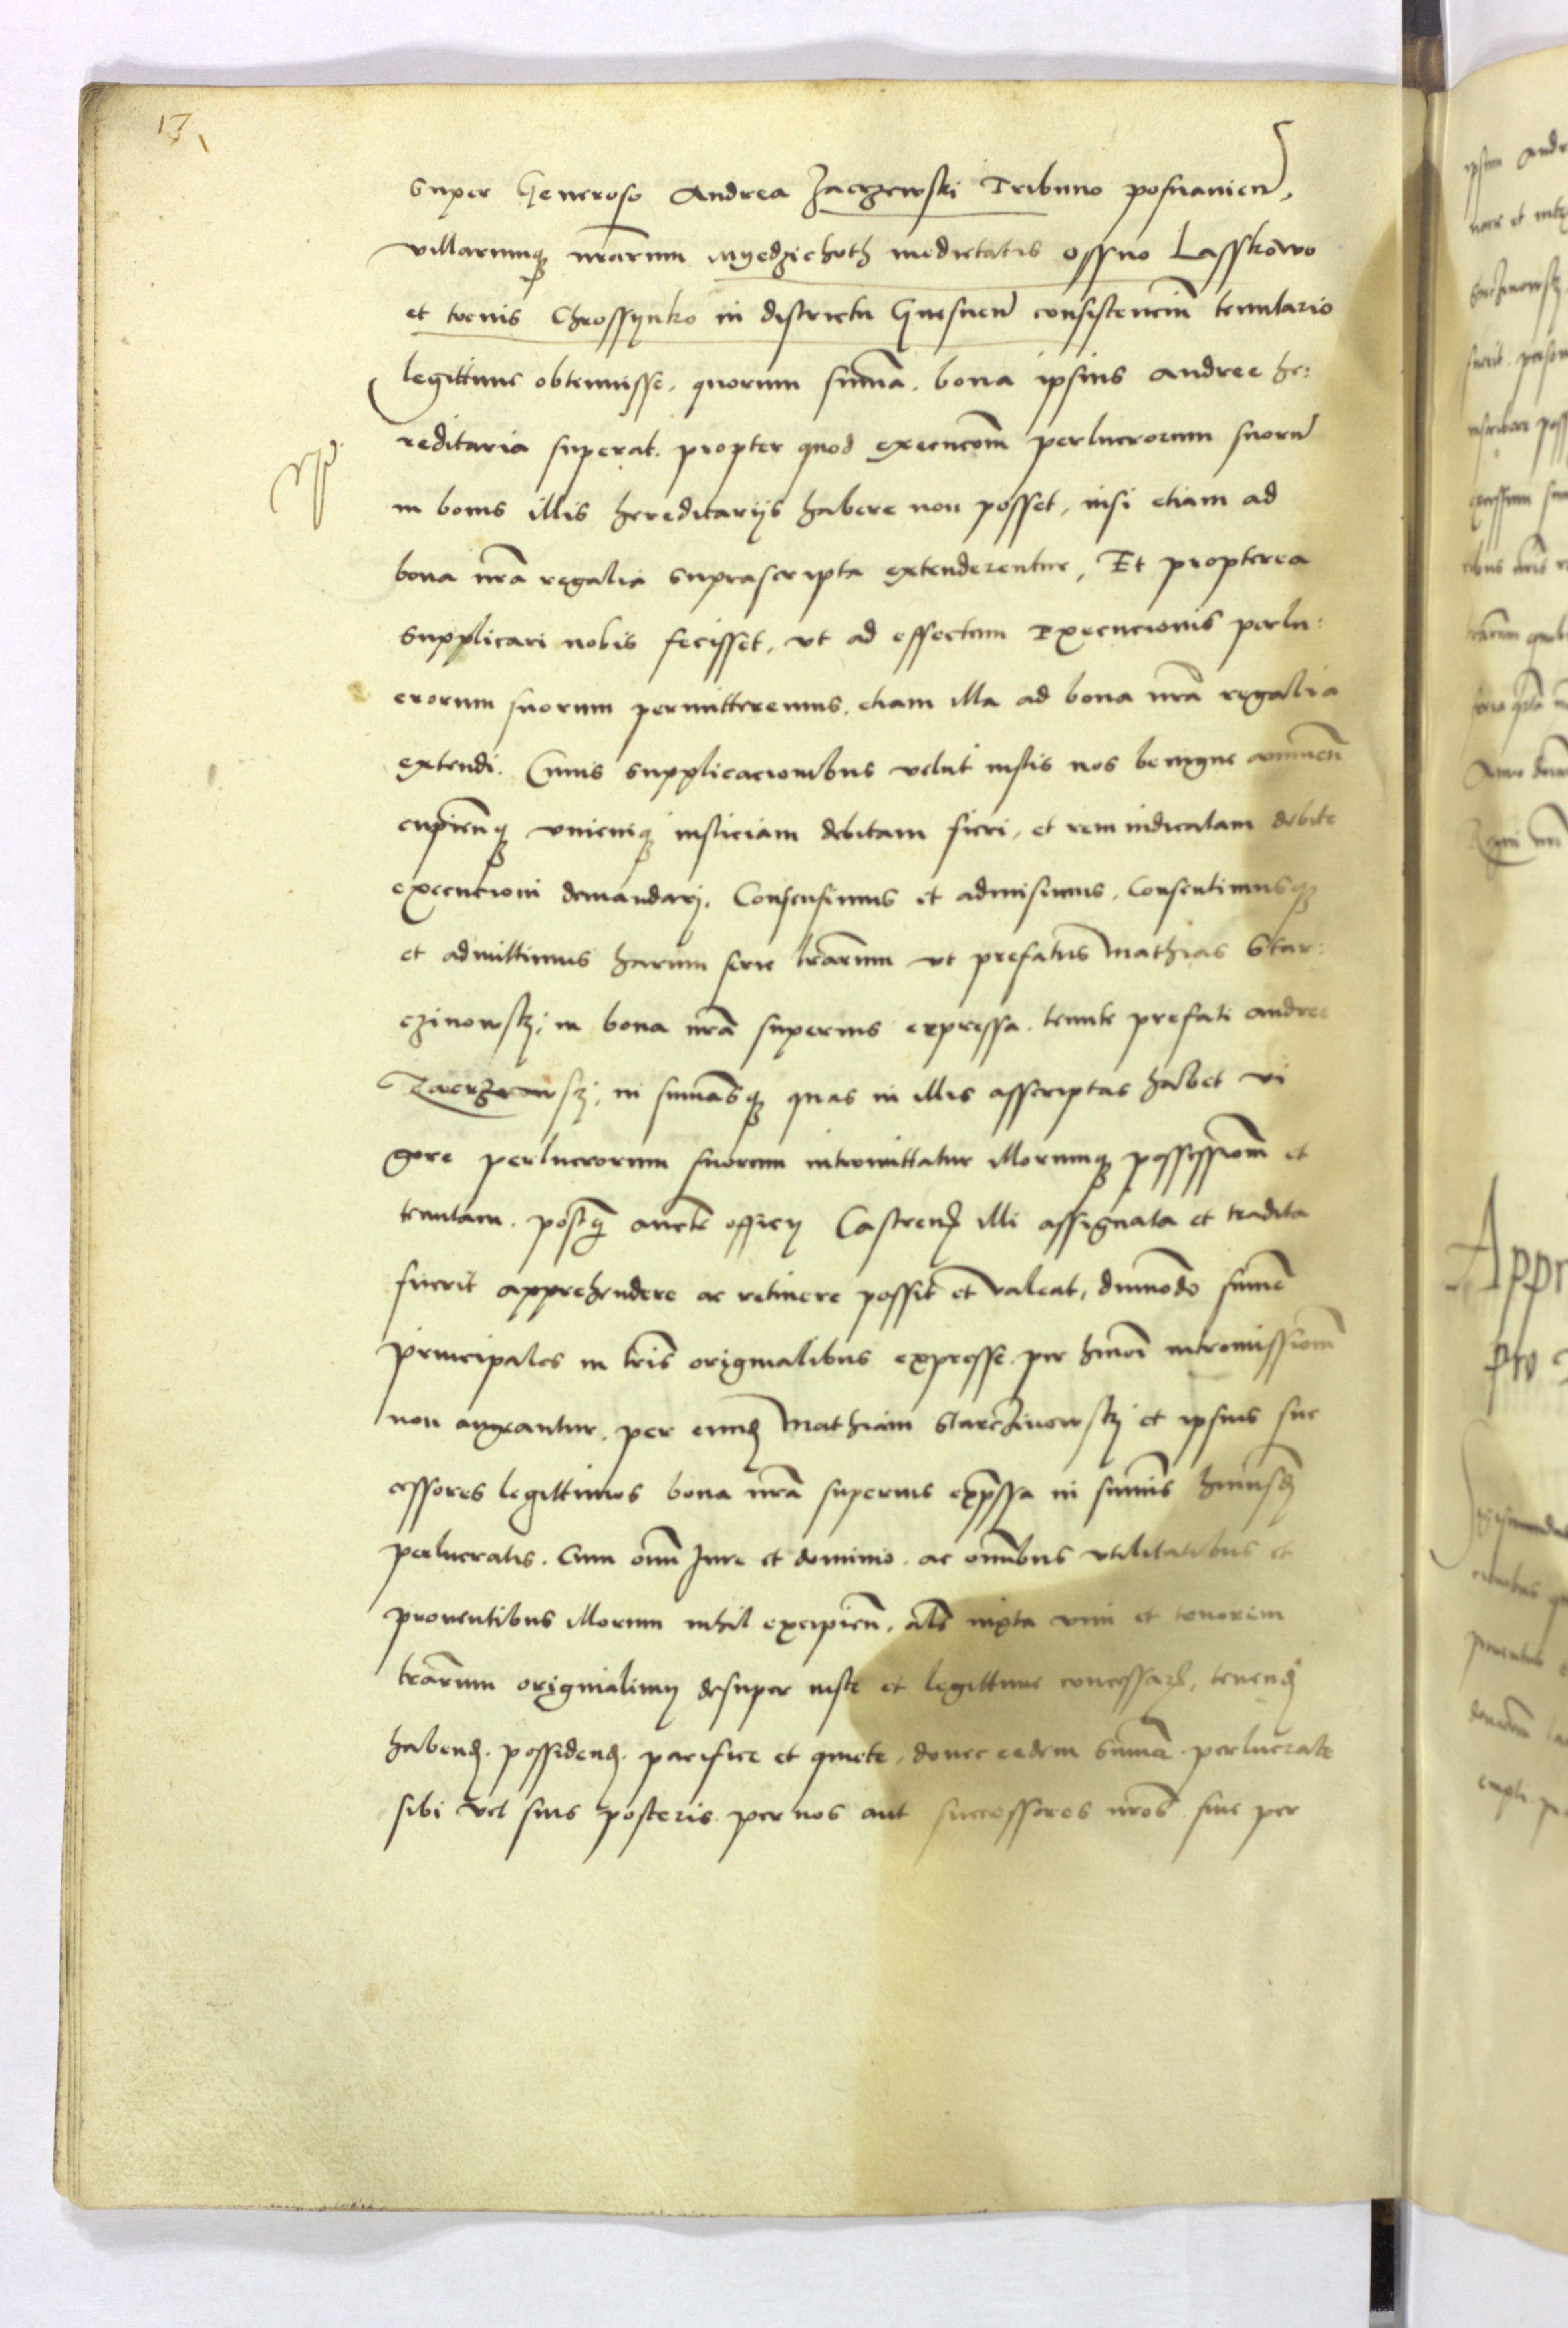 17
super Generoso Andrea Jaerzewski Tribuno posnanien̄,
villarumq̨ nrārum myedzichoth medietatis ossno Lasskowo
et tocius Chrossynko in districtu Gnesnen̄ consistenciū tenutario
legittime obtenuisse, quorum summā. bona ipsius Andree he:
reditaria superat. propter quod execucōm perlucrorum suorū
in bonis illis hereditarijs habere non posset, nisi etiam ad
bona nrā regalia suprascripta extenderentur, Et propterea
supplicari nobis fecisset, vt ad effectum Execucionis perlu:
crorum suorum permitteremus. etiam illa ad bona nrā regalia
extendi. Cuius supplicacionibus velut iustis nos benigne annuen̄
cupien̄q̨ vnicuiq̨ iusticiam debitam fieri, et rem iudicatam debite
execucioni demandarj. Consensimus et admisimus. Consentimusq̨
et admittimus harum serie lrārum vt prefatus Mathias Star:
czinowskj, in bona nrā superius expressa. tenute prefati Andree
Jaerzewskj, in summāsq̨ quas in illis asscriptas habet vi
gore perlucrorum suorum intromittatur illorumq̨ possessionem̄ et
tenutam. postq̄ aucte officij Castren̄ illi assignata et tradita
fuerit apprehendere ac retinere possit et valeat, dummodo summē
principales in lrīs originalibus expresse. per hmōi intromissionem̄
non augeantur. per eund̄ Mathiam Starczinowskj et ipsius suc
cessores legittimos bona nrā superius exp̄ssa in summis hmōi sūis
perlucratis. Cum om̄i Jure et dominio. ac om̄ibus vtilitatibus et
prouentibus illorum nihil excipien̄. als iuxta vim et tenorem
lrārum originalium desuper iuste et legittime concessarꝝ, tenend̄
habend̄. possidend̄. pacifice et quiete, donec eedem summe. perlucrate
sibi vel suis posteris. per nos aut successores nrōs siue per